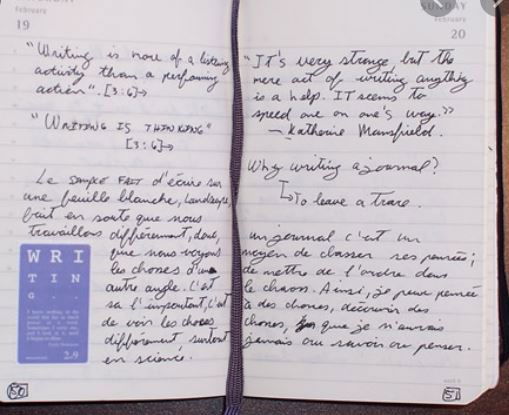 February
19
"Writing is more of a listening
activity than a performing
action". [3:6]→
"WRITING IS THINKING"
[3:6]→
Le SIMPLE FAIT d'écrire sur
une feuille blanche,
fait en sorte que nous
travaillons différemment, donc,
que nous voyons
les choses d'une
autre angle. C'est
sa l'important, c'est
de voir les choses
différemment, surtout
en science.
WRI
TIN
G..
2.9
50
SUNDAY
February
20
"It's very strange, but the
mere act of writing anything
is a help. IT seems to
speed one on one's way."
- Katherine Mansfield.
Why writing a journal?
↳ To leave a trace.
un journal c'est un
moyen de classer ses pensées;
de mettre de l'ordre dans
le chaos. Ainsi, je peux
à des choses, découvrir des
choses, que je n'aurais
jamais ou savoir ou penser.
51